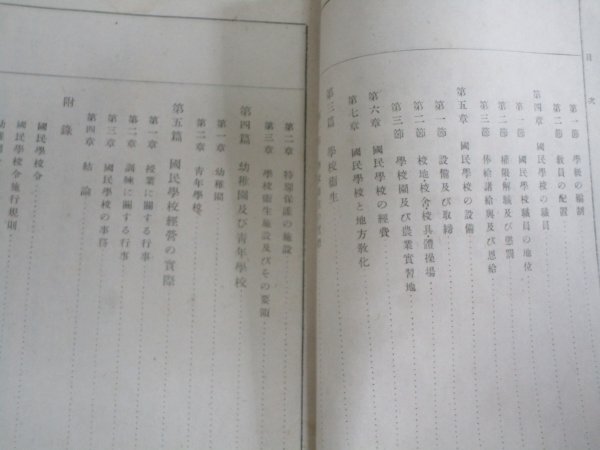 目次
第一節 學級の編制
第二節 敎員の配置
第四章 國民學校の職員
第一節 國民學校職員の地位
第二節 權限解職及び懲罰
第三節 俸給諸給與及び恩給
第五章 國民學校の設備
第一節 設備及び取締
第二節 校地校舍校具體操場
第三節 學校園及び農業實習地
第六章 國民學校の經費
第七章 國民學校と地方敎化
第三篇 學校衞生
第二章 特別保護の施設
第三章 學校衞生施設及びその要領
第四篇 幼稚園及び靑年學校
第一章 幼稚園
第二章 靑年學校
第五篇 國民學校經營の實際
第一章 授業に關する行事
第二章 訓練に關する行事
第三章 國民學校の事務
第四章 結論
附錄
國民學校令
國民學校令施行規則
幼稚園令